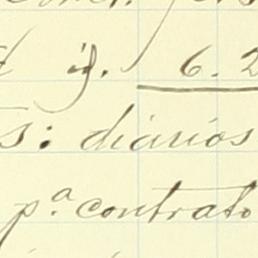 id. 6.2
s: diarios
p.ª contrato